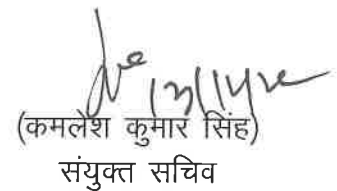 (कमलेश कुमार सिंह)
संयुक्त सचिव